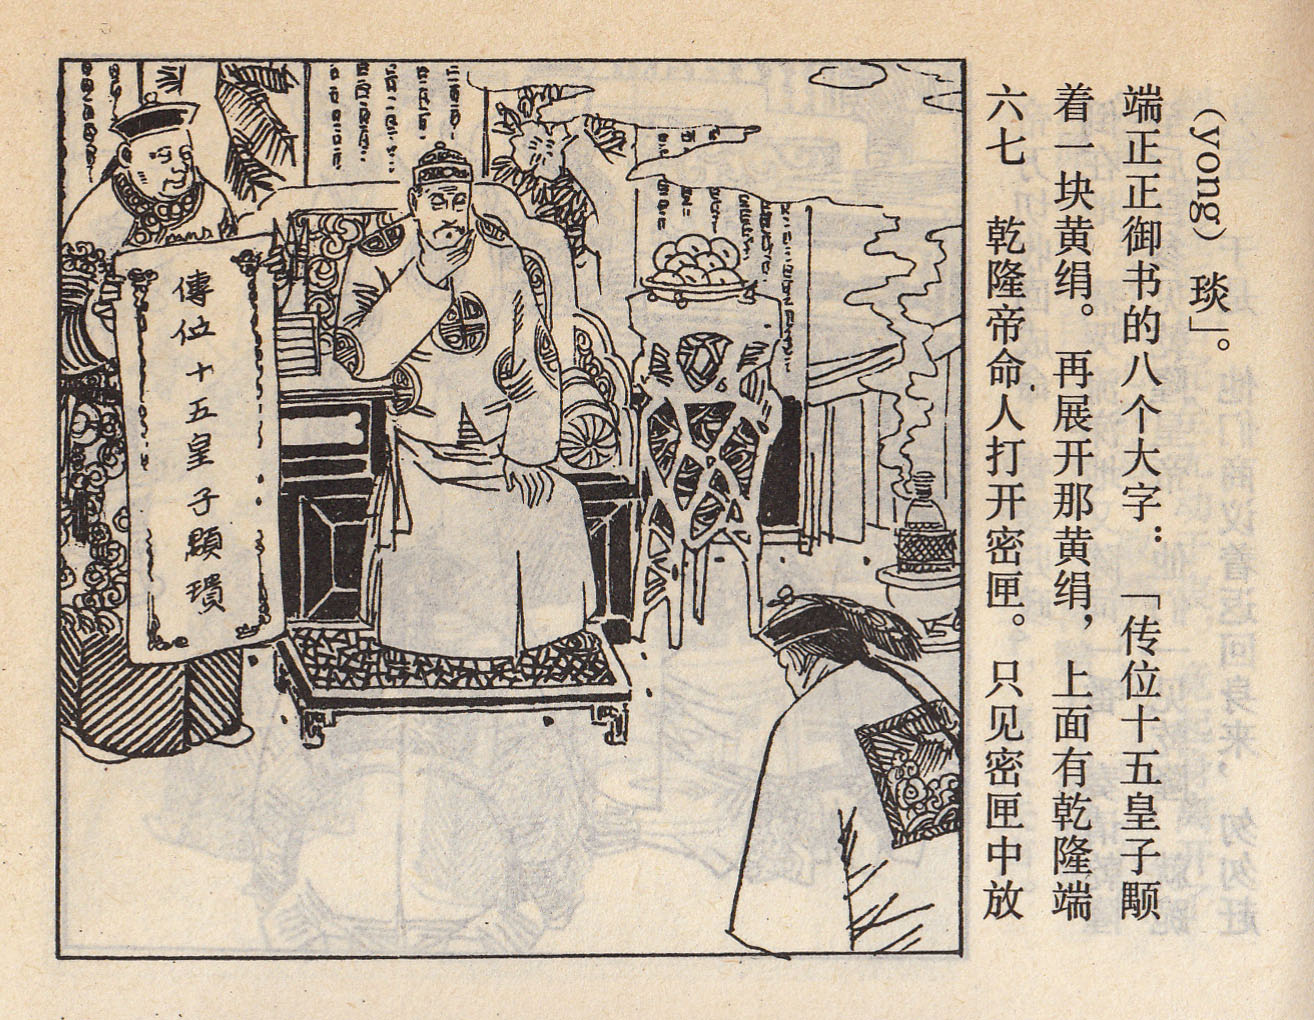 傳位十五皇子
六七 乾隆帝命人打开密匣。只见密匣中放
着一块黄绢。再展开那黄绢，上面有乾隆端
端正正御书的八个大字：「传位十五皇子颙
（yong）琰」。